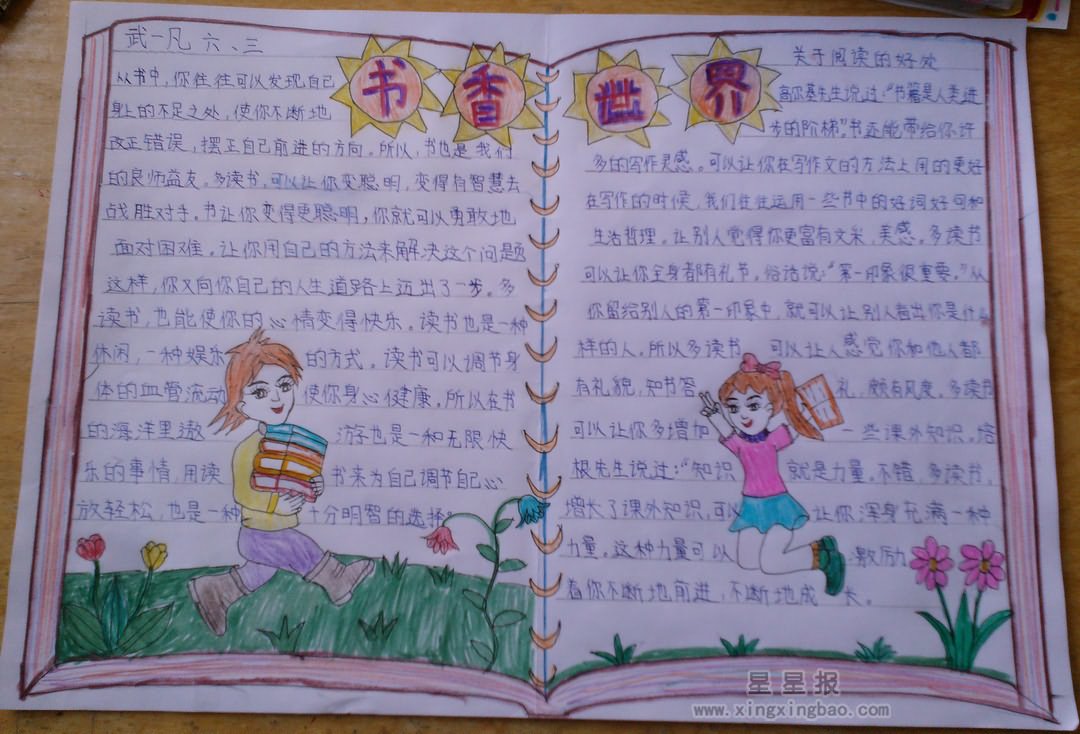 武一凡 六、三
书香世界
从书中,你往往可以发现自己
身上的不足之处,使你不断地
改正错误,摆正自己前进的方向。所以,书也是我们
的良师益友。多读书,可以让你变聪明,变得有智慧去
战胜对手。书让你变得更聪明,你就可以勇敢地
面对困难。让你用自己的方法来解决这个问题
这样,你又向你自己的人生道路上迈出了一步。多
读书,也能使你的心情变得快乐。读书也是一种
休闲,一种娱乐的方式。读书可以调节身
体的血管流动使你身心健康。所以在书
的海洋里遨游今也是一种无限快
乐的事情,用读书来为自己调节自己心
放轻松,也是一种十分明智的选择。
关于阅读的好处
高尔基先生说过:“书籍是人类进
步的阶梯”书还能带给你许
多的写作灵感。可以让你在写作文的方法上用的更好
在写作的时候,我们往往运用一些书中的好词好句和
生活哲理。让别人觉得你更富有文采,美感。多读书
可以让你全身都有礼节。俗话说:“第一印象很重要。”从
你留给别人的第一印象中,就可以让别人看出你是什么
样的人。所以多读书 可以让人感觉你和他人都
有礼貌,知书答礼,颇有风度。多读书
可以让你多增加一些课外知识。培
根先生说过:“知识就是力量。不错,多读书,
增长了课外知识,可以让你浑身充满一种
力量。这种力量可以激励
着你不断地前进,不断地成长。
星星报
www.xingxingbao.com